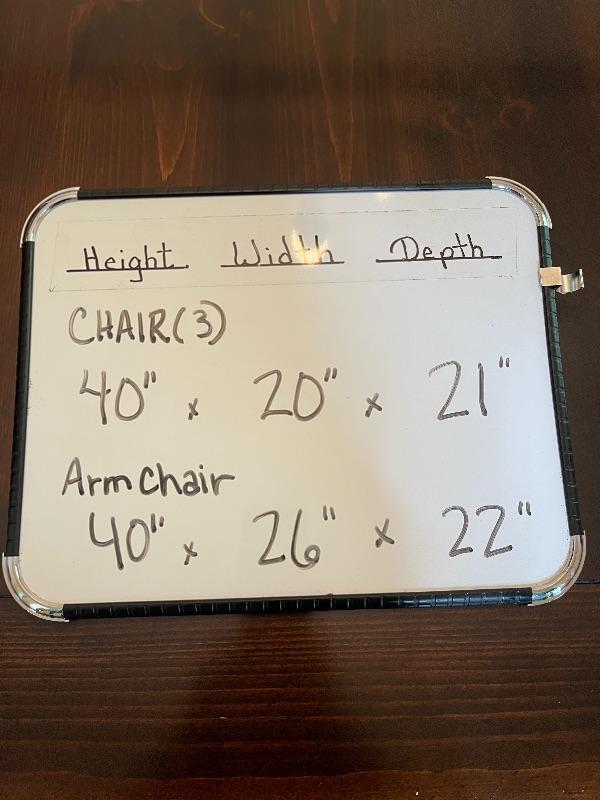 Height Width Depth
CHAIR(3)
40" x 20" x 21"
Arm Chair
40" x 26" x 22"